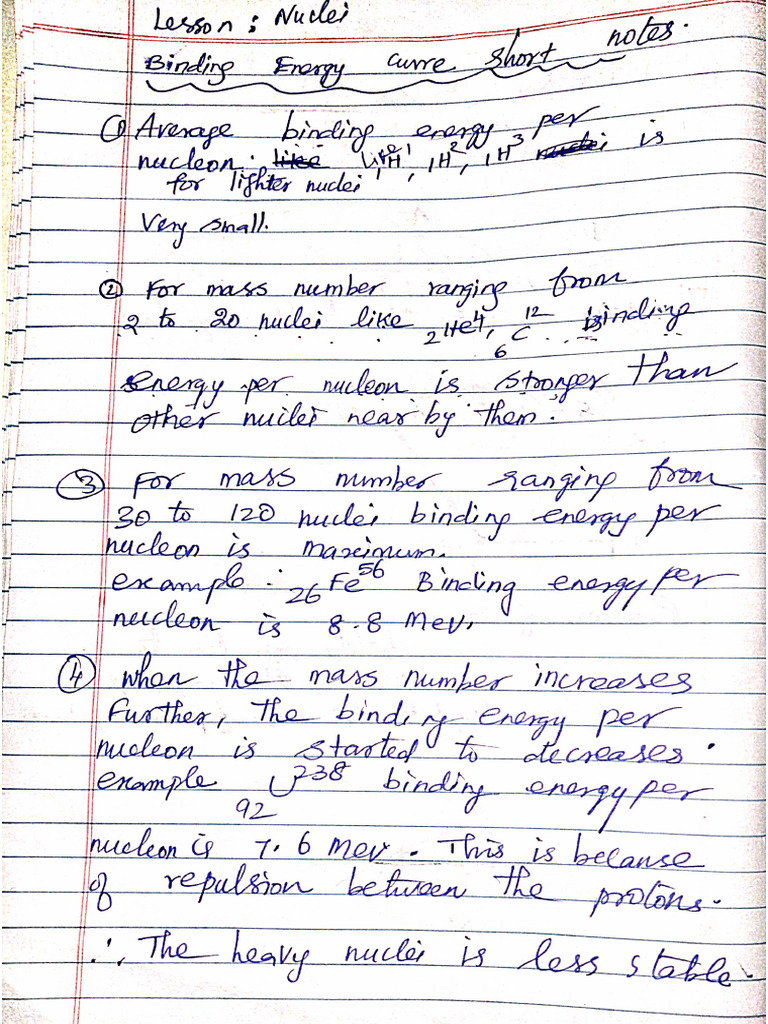 Lesson : Nuclei
Binding Energy curve short notes.
① Average binding energy per
nucleon. like ₁H¹, ₁H², ₁H³ is
for lighter nuclei
Very small.
② For mass number ranging from
2 to 20 nuclei like ₂He⁴, ₆C¹² binding
energy per nucleon is stronger than
other nuclei near by them.
③ For mass number ranging from
30 to 120 nuclei binding energy per
nucleon is maximum.
example : ₂₆Fe⁵⁶ Binding energy per
nucleon is 8.8 Mev.
④ when the mass number increases
Further, the binding energy per
nucleon is started to decreases.
example ₉₂U²³⁸ binding energy per
nucleon is 7.6 Mev. This is because
of repulsion between the protons.
∴ The heavy nuclei is less stable.